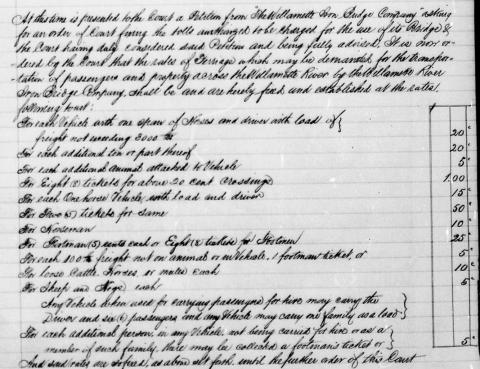 At this time is presented to the Court a Petition from "The Willamette Iron Bridge Company" asking
for an order of Court fixing the tolls authorized to be charged for the use of its Bridge &
the Court having duly considered said Petition and being fully advised. It is now or-
dered by the Court that the rates of Ferriage which may be demanded for the transpor-
tation of passengers and property across the Willamette River by the Willamette River
Iron Bridge Company, shall be and are hereby fixed and established at the rates
following towit:
For each Vehicle with one span of Horses and driver with load of }
freight not exceeding 3000 lbs 20 c
For each additional ton or part thereof 20 c
For each additional animal attached to Vehicle 5 c
For Eight (8) tickets for above 20 cent Crossings 1.00
For each One horse Vehicle, with load and driver 15 c
For Five (5) tickets for same 50 c
For Horseman 10 c
For Footman (5) cents each or Eight (8) tickets for Footmen 25 c
For each 100 lbs freight not on animal or in Vehicle, 1 footman ticket, or 5 c
For loose Cattle, Horses, or mules each 10 c
For Sheep and Hogs each 5 c
Any Vehicle when used for carrying passengers for hire may carry the }
Driver and six (6) passengers, and any Vehicle may carry one family as a load }
For each additional person, in any Vehicle, not being carried for hire or as a }
member of such family, there may be collected a footman's ticket or } 5 c
And said rates are so fixed, as above set forth, until the further order of this Court